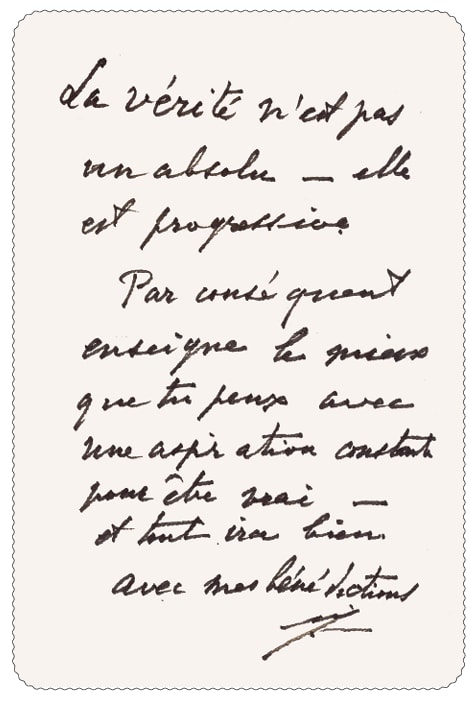 La vérité n'est pas
un absolu — elle
est progressive
Par conséquent
enseigne le mieux
que tu peux avec
une aspiration constante
pour être vrai —
et tout ira bien.
avec mes bénédictions